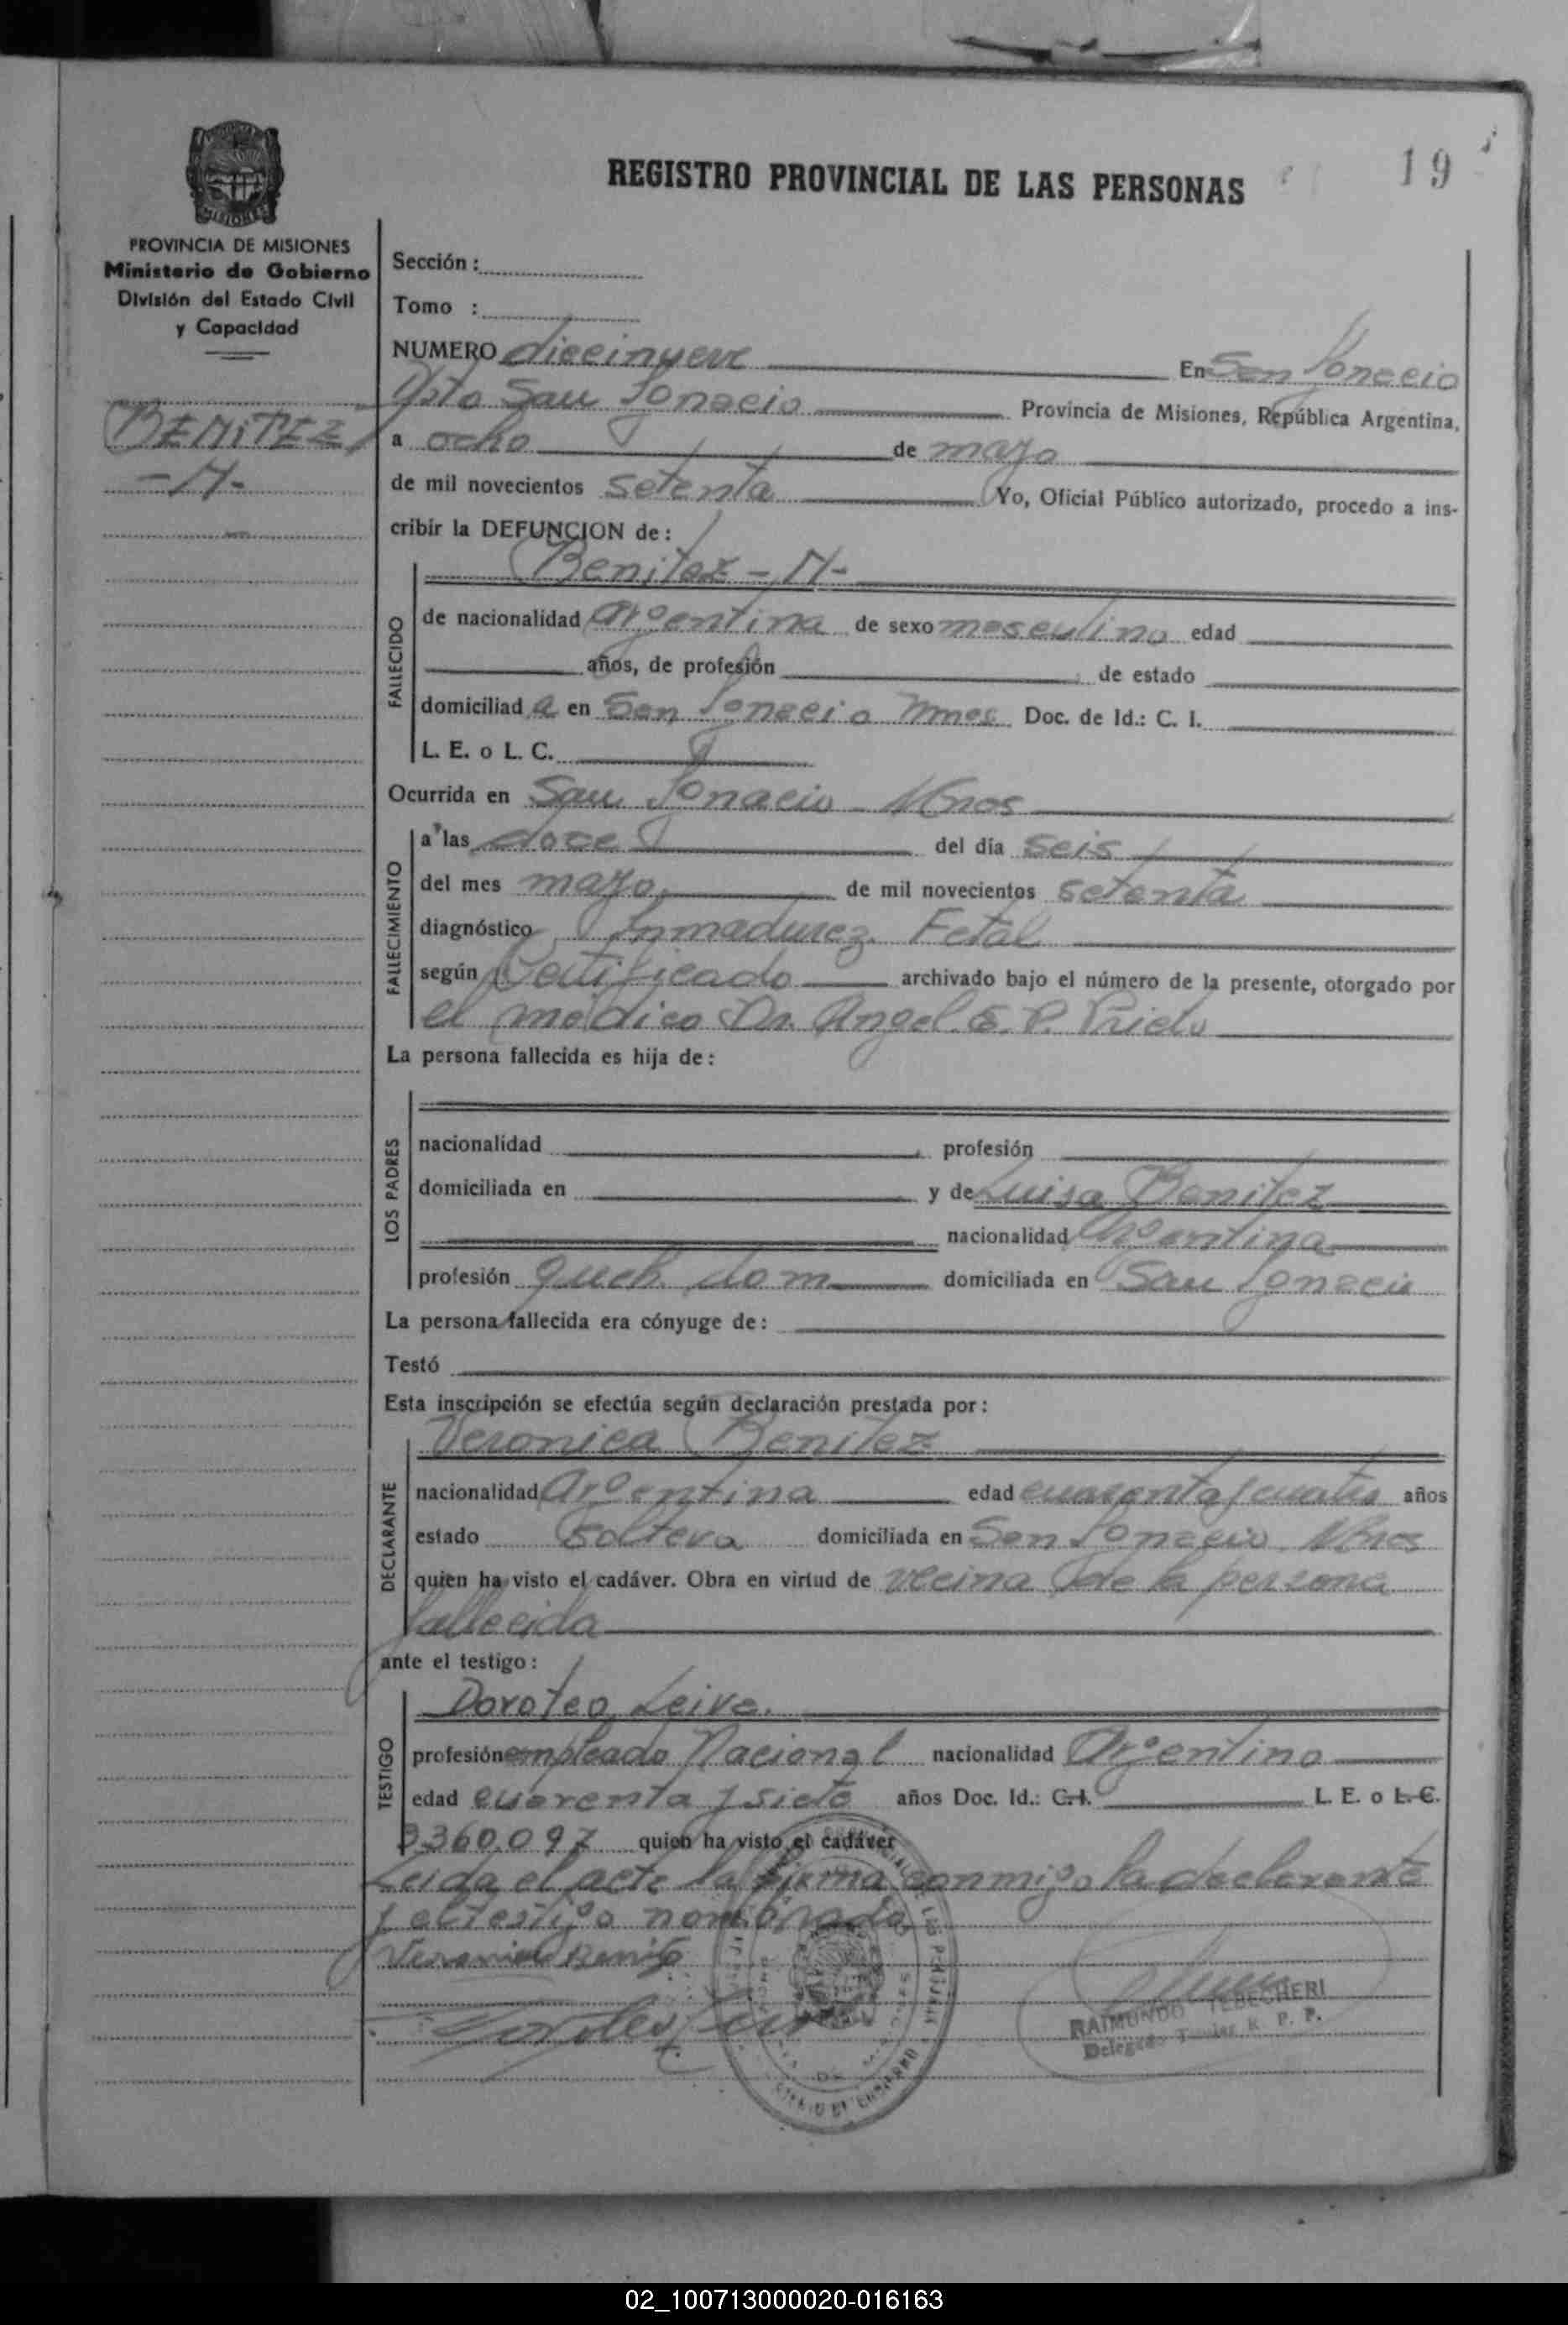 REGISTRO PROVINCIAL DE LAS PERSONAS
19
PROVINCIA DE MISIONES
Ministerio de Gobierno
División del Estado Civil
y Capacidad
BENITEZ
-N-
Sección:
Tomo :
NUMERO diecinueve En San Ignacio
Dpto San Ignacio Provincia de Misiones, República Argentina,
a ocho de mayo
de mil novecientos setenta Yo, Oficial Público autorizado, procedo a ins-
cribir la DEFUNCION de:
Benitez - N-
FALLECIDO
de nacionalidad argentina de sexo masculino edad
años, de profesión de estado
domiciliad a en San Ignacio Mnes Doc. de Id.: C. I.
L. E. o L. C.
Ocurrida en San Ignacio Mnes
FALLECIMIENTO
a las doce del día seis
del mes mayo de mil novecientos setenta
diagnóstico Inmadurez Fetal
según Certificado archivado bajo el número de la presente, otorgado por
el médico Dr. Angel E. P. Prieto
La persona fallecida es hija de:
LOS PADRES
nacionalidad profesión
domiciliada en y de Luisa Benitez
nacionalidad Argentina
profesión queh. dom domiciliada en San Ignacio
La persona fallecida era cónyuge de:
Testó
Esta inscripción se efectúa según declaración prestada por:
Veronica Benitez
DECLARANTE
nacionalidad argentina edad cuarenta y cuatro años
estado soltera domiciliada en San Ignacio Mnes
quien ha visto el cadáver. Obra en virtud de vecina de la persona
fallecida
ante el testigo:
Doroteo Leiva.
TESTIGO
profesión empleado Nacional nacionalidad Argentino
edad cuarenta y siete años Doc. Id.: C.I. L. E. o L.C.
3360.097 quien ha visto el cadáver
Leida el acta la firma conmigo la declarante
y el testigo nombrado
Veronica Benitez
RAIMUNDO TEBECHERI
Delegado Titular R. P. P.
02_100713000020-016163